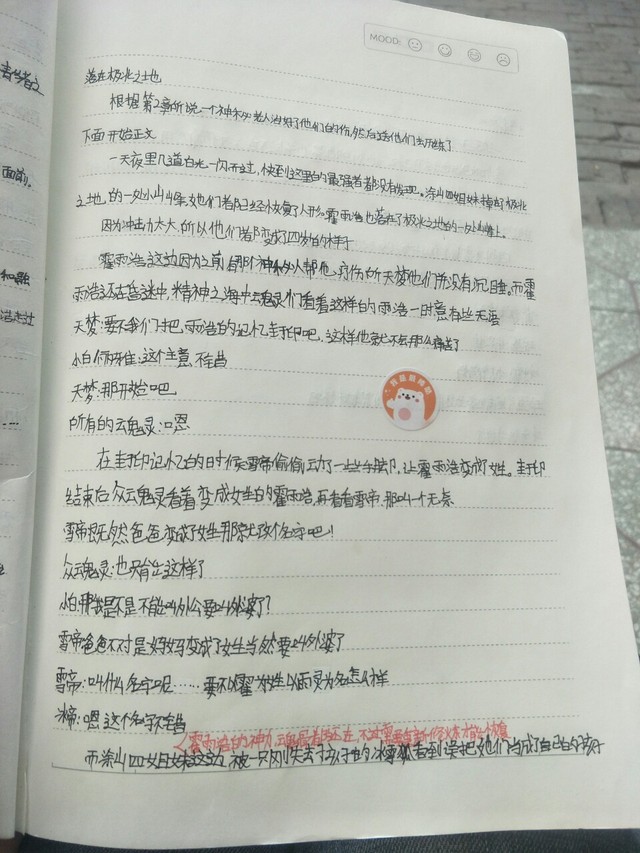 MOOD:
者华者之
面前。
和融
浩走过
落在极北之地
根据第2章所说一个神秘老人治好了他们的伤,然后送他们去历练了
下面开始正文
一天夜里几道白光一闪而过,快到这里的最强者都没有发现。涂山四姐妹掉到极北
之地,的一处小山峰,她们都已经恢复了人形。霍雨浩也落在了极北之地的一处山峰上。
因为冲击力太大,所以他们都变成了四岁的样子
霍雨浩这边因为之前有那个神秘人帮他,疗伤所天梦他们并没有沉睡。而霍
雨浩还在昏迷中,精神之海中云魂灵们看着这样的雨浩一时竟有些无语
天梦:要不我们才把,雨浩的记忆封印吧,这样他就不会那么痛苦了
小白何丽雅:这个主意,不错
天梦:那开始吧
所有的云魂灵:嗯
在封印记忆的时候雪帝偷偷动了一些手脚,让霍雨浩变成了女性。封印
结束后众云魂灵看着变成女生的霍雨浩,再看看雪帝,那叫一个无奈
雪帝既然爸爸变成了女生那就改个名字吧!
众魂灵:也只能这样了
小白:那我是不是不能叫外公要叫外婆了?
雪帝爸爸不对是妈妈变成了女生当然要叫外婆了
雪帝:叫什么名字呢……要不以霍为姓以雨灵为名怎么样
冰帝:嗯这个名字不错
而涂山四姐妹这边,被一只刚失去了孩子的冰雪狐看到误把她们当成了自己的孩子